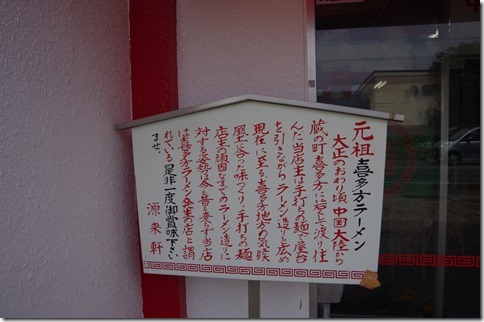 元祖喜多方ラーメン
大正のおわり頃中国大陸から
蔵の町喜多方に若くして渡り住
んだ当店主は手打ちの麺で屋台
を引きながらラーメン造りを広め
現在に至る。喜多地方の気候
風土に合った味つくり、手打ちの麺
店主の頑固なまでのラーメン造りに
対する姿勢は今も昔も変らず当店
は喜多方ラーメン発生の店と謂
れている。是非一度御賞味下さい
ませ。
源来軒